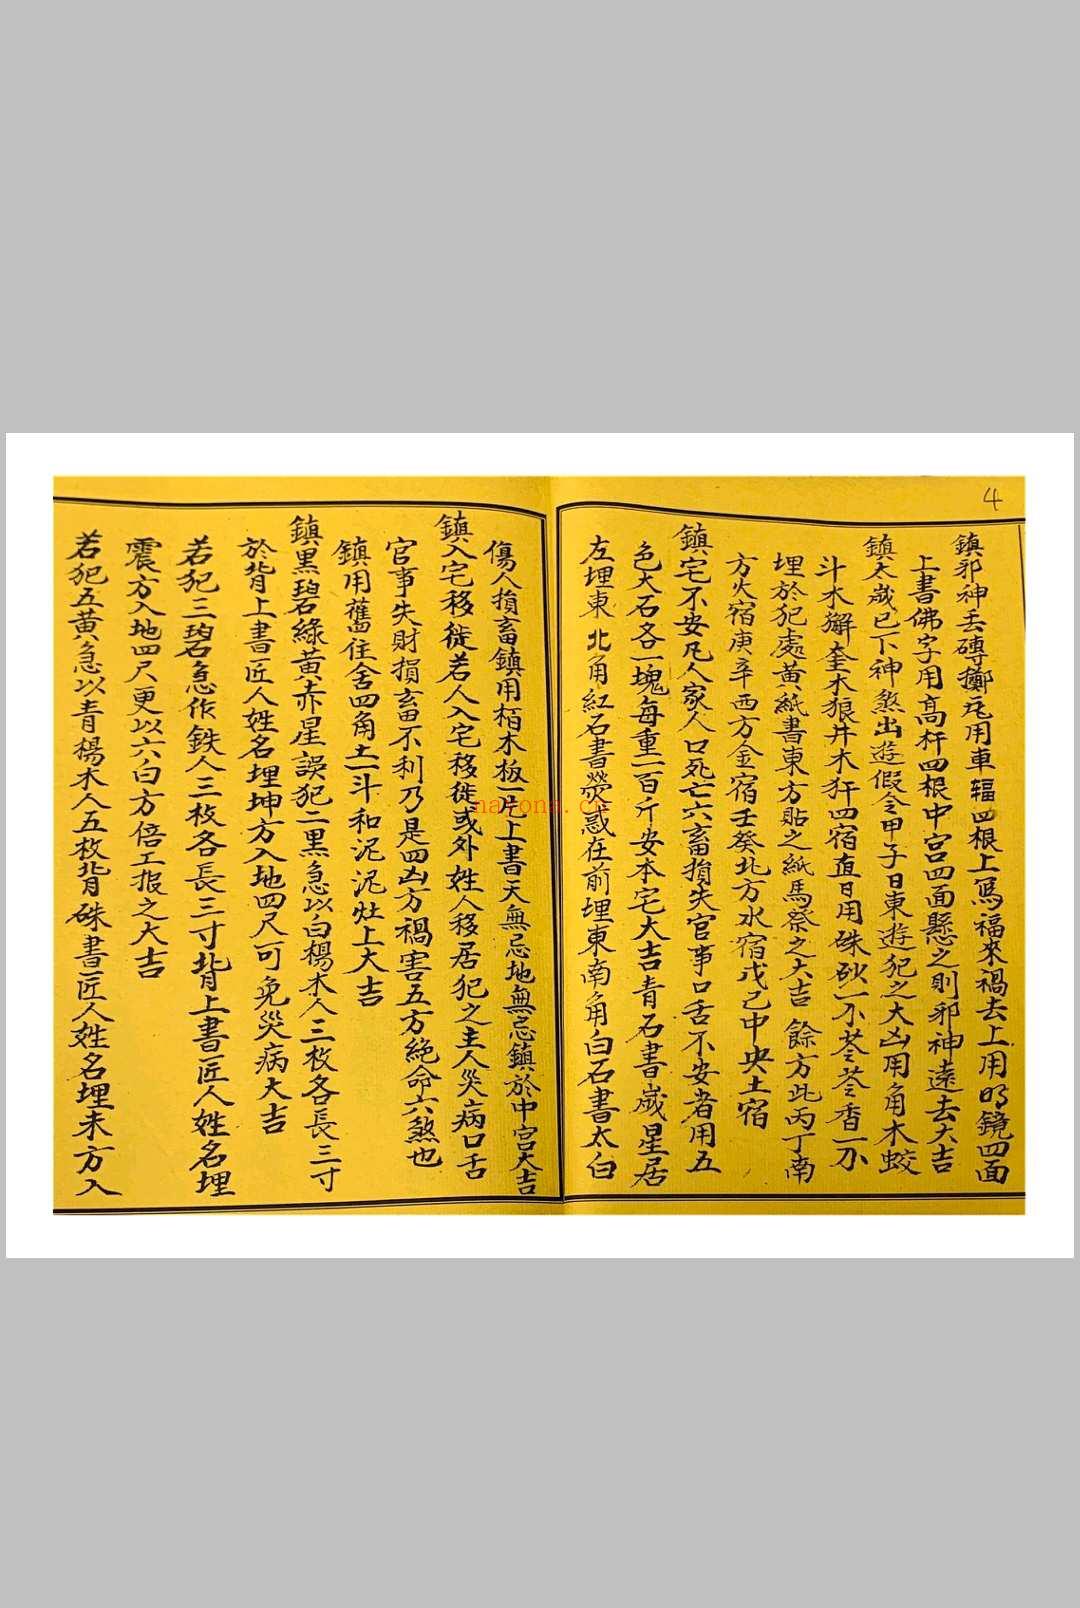 4
鎮邪神丢磚擲瓦用車辐四根上写福來禍去上用明鏡四面
上書佛字用高杆四根中宫四面懸之則邪神遠去大吉
鎮太歲已下神煞出遊假令甲子日東遊犯之大凶用角木蛟
斗木獬奎木狼井木犴四宿直日用硃砂一不苓苓香一不
埋於犯處黄紙書東方貼之紙馬祭之大吉 餘方此丙丁南
方火宿庚辛西方金宿壬癸北方水宿戊己中央土宿
鎮宅不安凡人家人口死亡六畜損失官事口舌不安者用五
色大石各一塊每重一百斤安本宅大吉青石書歲星居
左埋東北角紅石書熒惑在前埋東南角白石書太白
傷人損畜鎮用栢木板一片上書天無忌地無忌鎮於中宫大吉
鎮入宅移徙若人入宅移徙或外姓人移居犯之主人災病口舌
官事失財損畜不利乃是四凶方禍害五方絶命六煞也
鎮用舊住舍四角土一斗和泥泥灶上大吉
鎮黒碧綠黄赤星誤犯二黒急以白楊木人三枚各長三寸
於背上書匠人姓名埋坤方入地四尺可免災病大吉
若犯三碧急作鉄人三枚各長三寸背上書匠人姓名埋
震方入地四尺更以六白方倍工报之大吉
若犯五黄急以青楊木人五枚背硃書匠人姓名埋未方入
nayona.cn